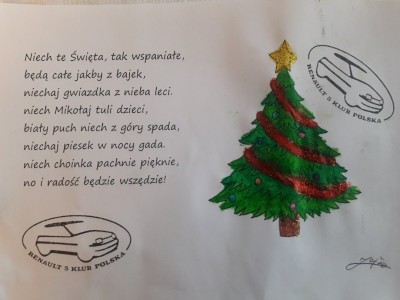 Niech te Święta, tak wspaniałe,
będą całe jakby z bajek,
niechaj gwiazdka z nieba leci.
niech Mikołaj tuli dzieci,
biały puch niech z góry spada,
niechaj piesek w nocy gada.
niech choinka pachnie pięknie,
no i radość będzie wszędzie!
RENAULT 5 KLUB POLSKA
RENAULT 5 KLUB POLSKA